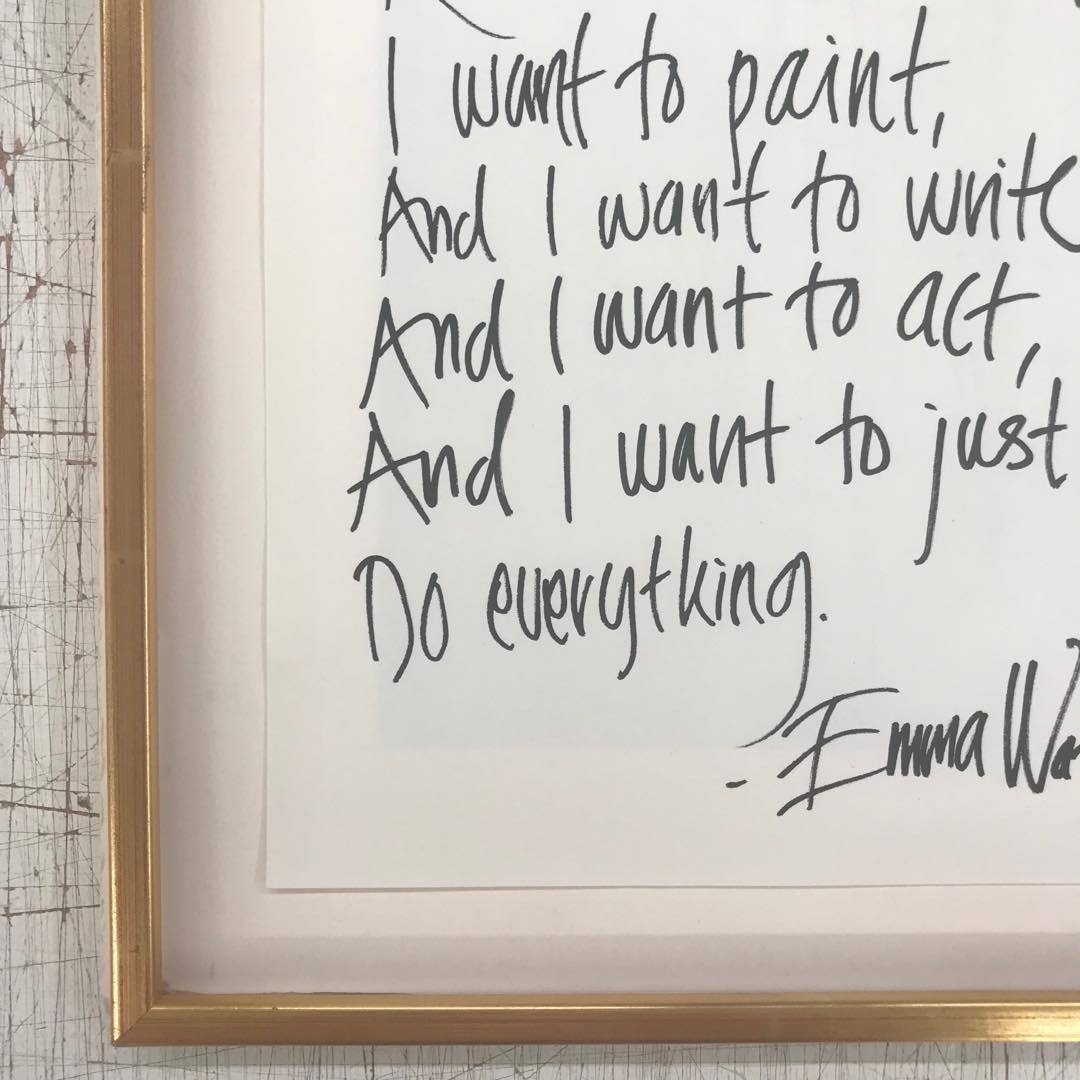 I want to paint,
And I want to write
And I want to act,
And I want to just
Do everything.
- Emma